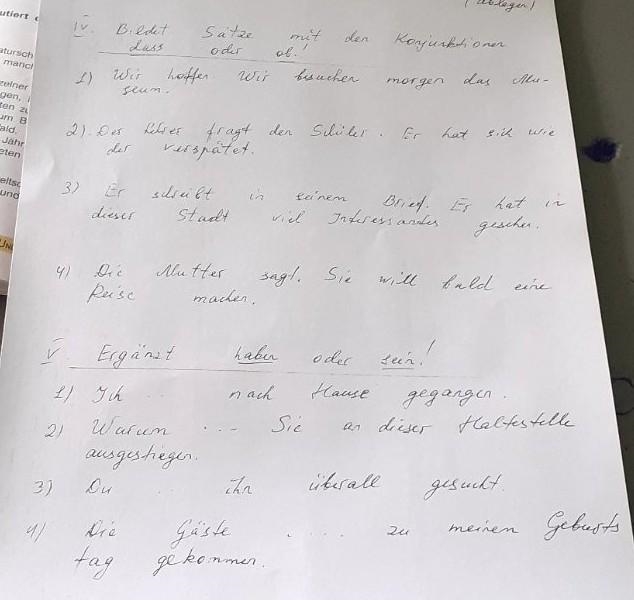 utiert
(ablegen)
atursch
manc
zelner
gen,
ten zu
um B
ald.
Jähr
eten
eitsc
und
IV. Bildet Sätze mit den Konjunktionen
dass oder ob!
1) Wir hoffen. Wir besuchen morgen das Mu-
seum.
2). Der Lehrer fragt den Schüler. Er hat sich wie
der verspätet.
3) Er schreibt in seinem Brief. Er hat in
dieser Stadt viel Interessantes gesehen.
4) Die Mutter sagt. Sie will bald eine
Reise machen.
V. Ergänzt haben oder sein!
1) Ich .. nach Hause gegangen.
2) Warum ... Sie an dieser Haltestelle
ausgestiegen.
3) Du .. ihn überall gesucht.
4) Die Gäste .... zu meinen Geburts
tag gekommen.